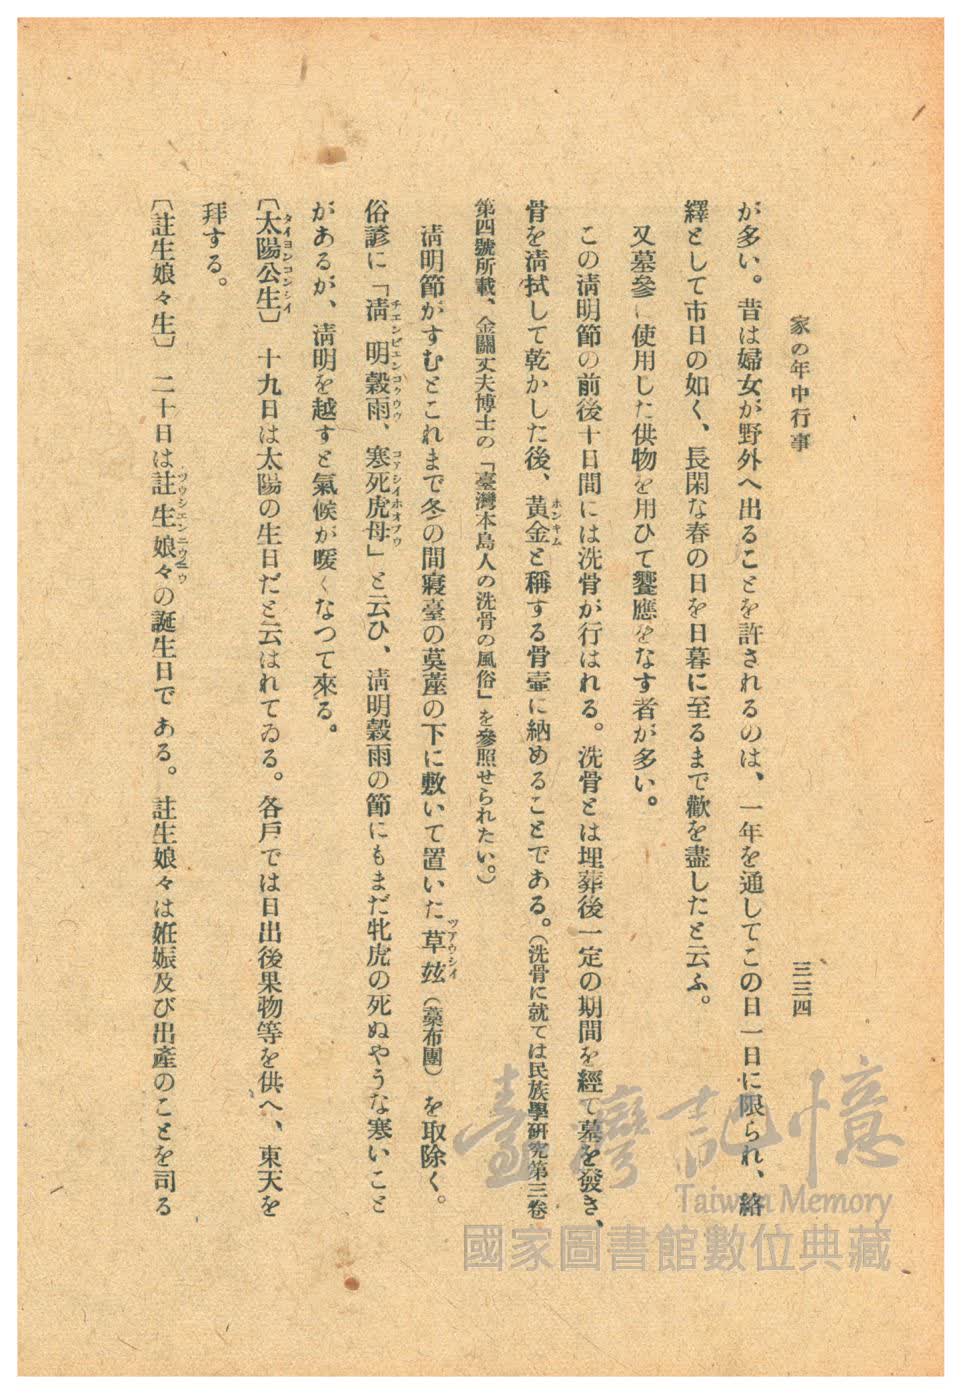 家の年中行事
三三四
が多い。昔は婦女が野外へ出ることを許されるのは、一年を通してこの日一日に限られ、絡
繹として市日の如く、長閑な春の日を日暮に至るまで歡を盡したと云ふ。
又墓參に使用した供物を用ひて饗應をなす者が多い。
この淸明節の前後十日間には洗骨が行はれる。洗骨とは埋葬後一定の期間を經て墓を發き、
骨を淸拭して乾かした後、黃金と稱する骨壷に納めることである。（洗骨に就ては民族學硏究第三卷
ホンキム
第四號所載、金關丈夫博士の「臺灣本島人の洗骨の風俗」を參照せられたい。）
淸明節がすむとこれまで冬の間寢臺の茣蓙の下に敷いて置いた草玆（藁布團）を取除く。
ツアウシイ
俗諺に「淸明穀雨、寒死虎母」と云ひ、淸明穀雨の節にもまだ牝虎の死ぬやうな寒いこと
チエンビエンコクウウ
コアシイホオブウ
があるが、淸明を越すと氣候が暖くなつて來る。
〔太陽公生〕　十九日は太陽の生日だと云はれてゐる。各戶では日出後果物等を供へ、東天を
タイヨンコンシイ
拜する。
〔註生娘々生〕　二十日は註生娘々の誕生日である。註生娘々は姙娠及び出產のことを司る
ツウシエンニウニウ
臺灣記憶
Taiwan Memory
國家圖書館數位典藏